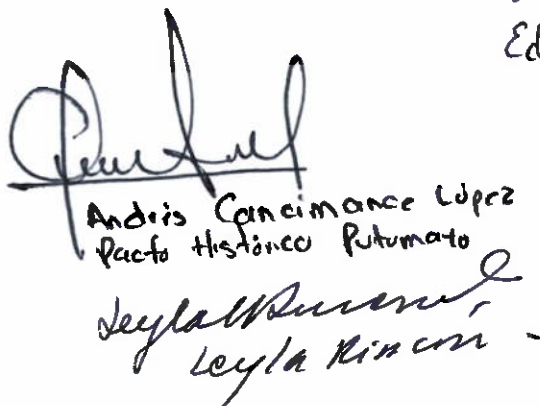 Ed
Andrés Cancimance López
Pacto Histórico Putumayo
Leyla Rincón